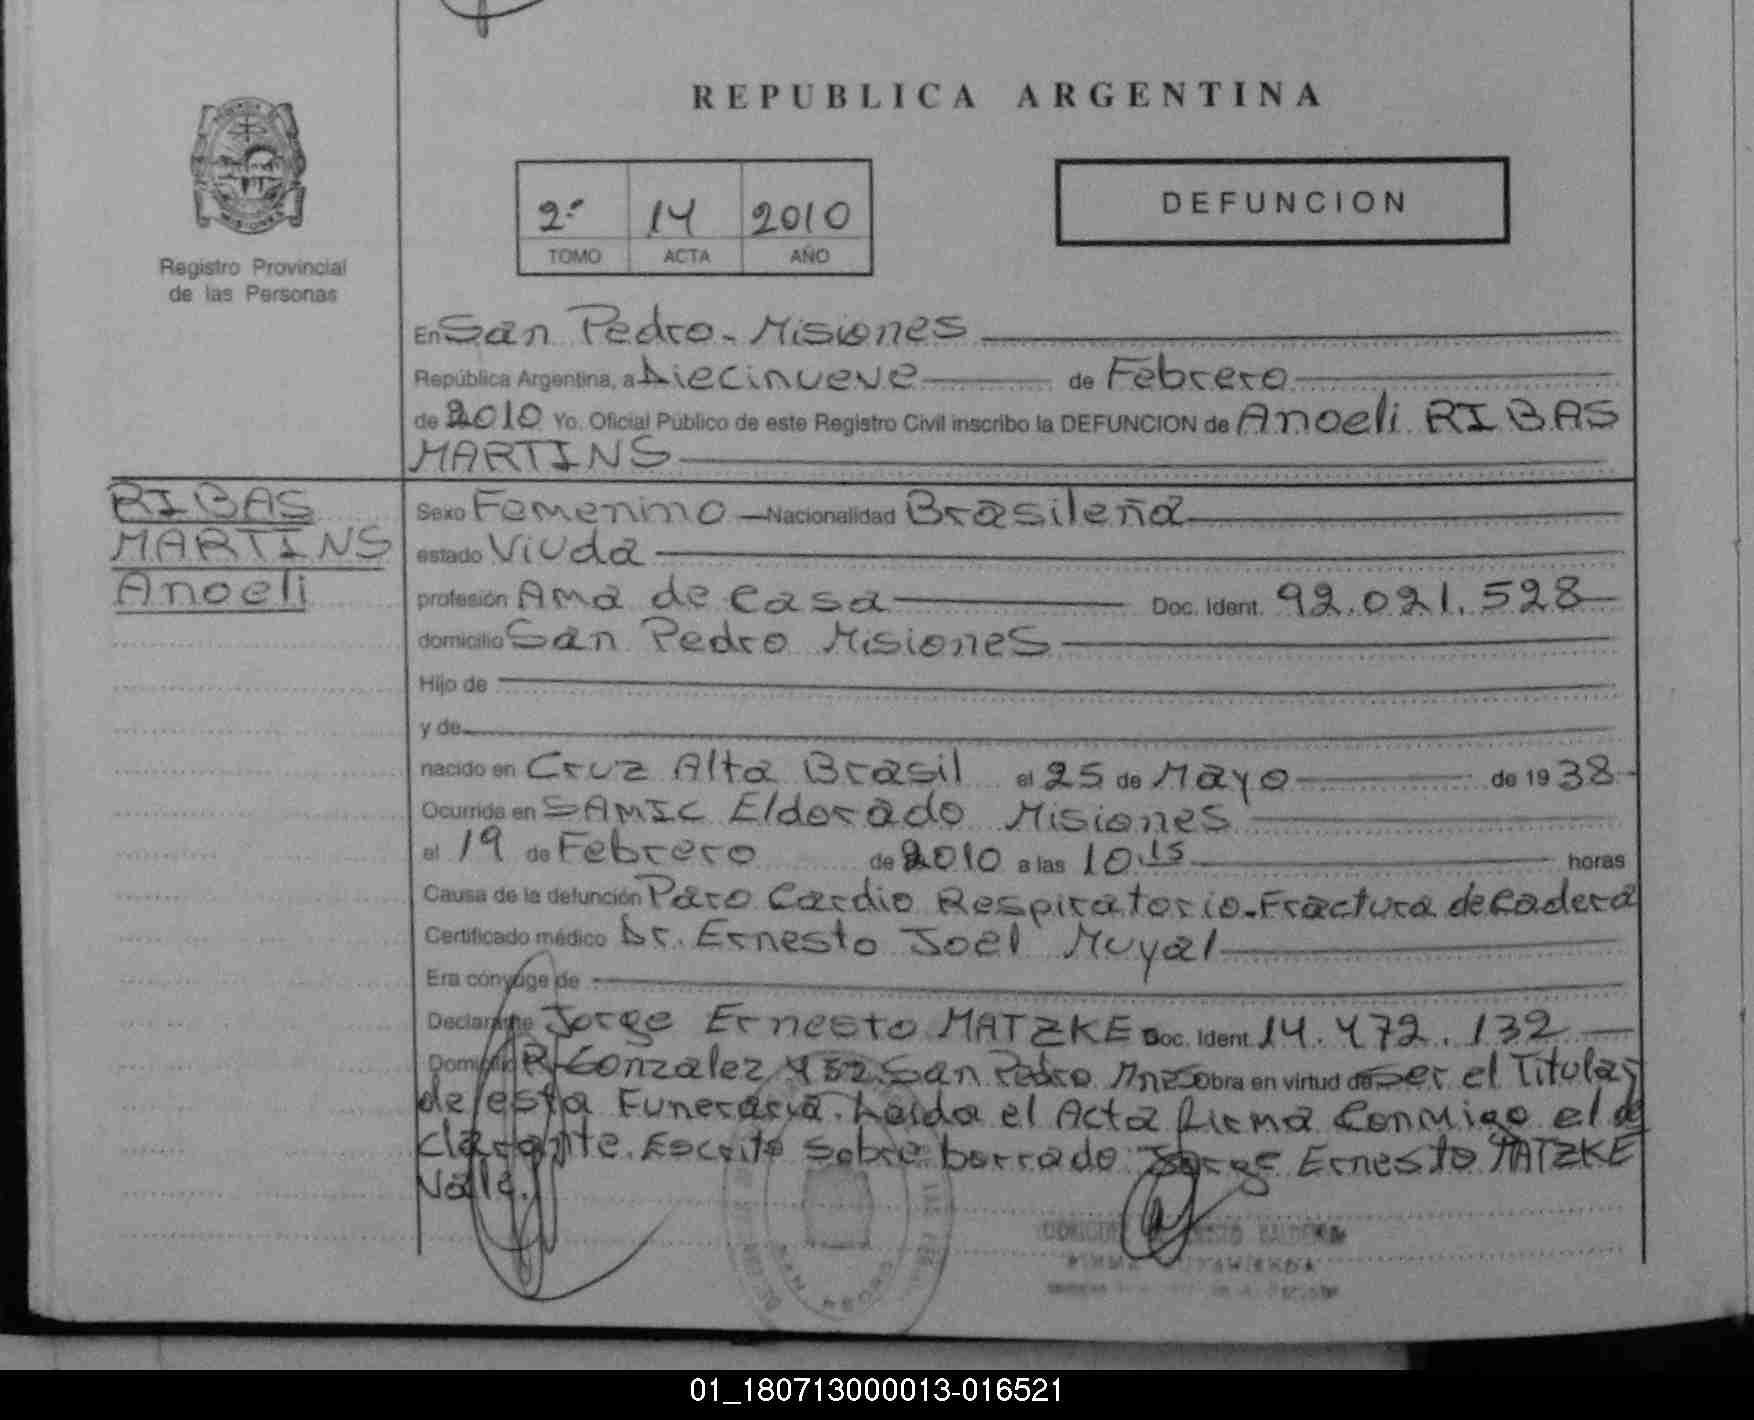 REPUBLICA ARGENTINA
2º 14 2010
TOMO ACTA AÑO
DEFUNCION
Registro Provincial
de las Personas
En San Pedro - Misiones
República Argentina, a Diecinueve de Febrero
de 2010 Yo. Oficial Público de este Registro Civil inscribo la DEFUNCION de Anoeli RIBAS
MARTINS
RIBAS
MARTINS
Anoeli
Sexo Femenino Nacionalidad Brasileña
estado Viuda
profesión Ama de casa Doc. Ident. 92.021.528
domicilio San Pedro Misiones
Hijo de
y de
nacido en Cruz Alta Brasil el 25 de Mayo de 1938
Ocurrida en SAMIC Eldorado Misiones
el 19 de Febrero de 2010 a las 10.15 horas
Causa de la defunción Paro Cardio Respiratorio - Fractura de Cadera
Certificado médico Dr. Ernesto Joel Muyal
Era cónyuge de
Declarante Jorge Ernesto MATZKE Doc. Ident 14.472.132
Domicilio R. Gonzalez 452 San Pedro Mnes obra en virtud de Ser el Titular
de esta Funeraria. Leida el Acta firma Conmigo el de
clarante. Escrito sobre borrado Jorge Ernesto MATZKE
Vale.
01_180713000013-016521